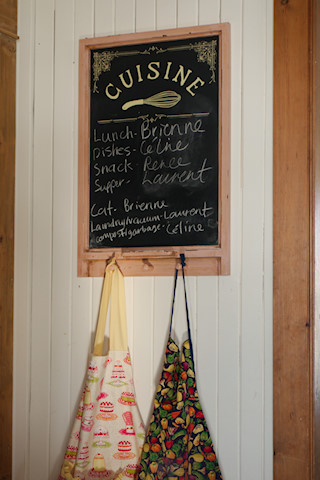 CUISINE
Lunch - Brienne
Dishes - Céline
Snack - Renee
Supper - Laurent
Cat - Brienne
Laundry/vacuum - Laurent
compost/garbage - Céline